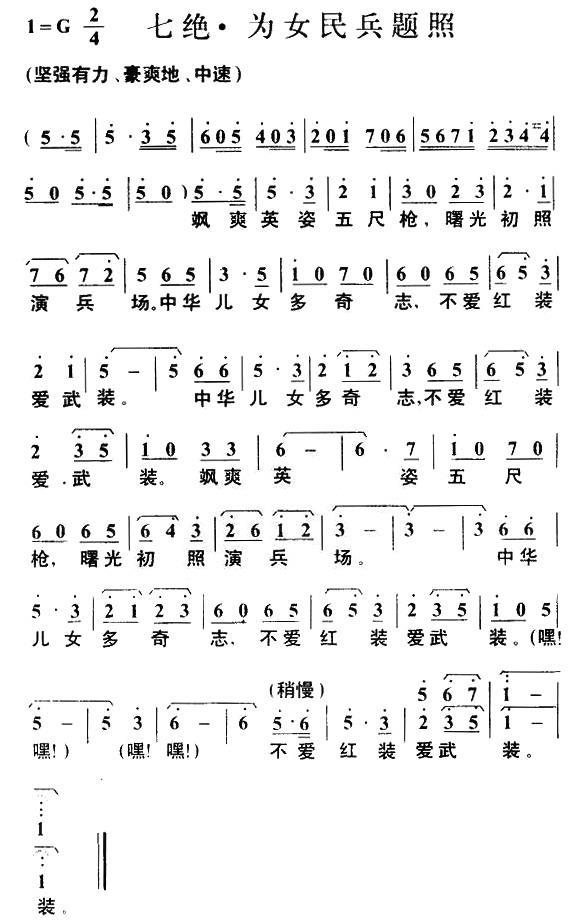 1=G 2/4 七绝·为女民兵题照
(坚强有力、豪爽地、中速)
( 5·5 | 5·3 5 | 605 403 | 201 706 | 5671 2344 |
5 0 5·5 | 5 0 ) 5·5 | 5·3 | 2 1 | 3 0 2 3 | 2·1 |
飒爽英姿五尺枪，曙光初照
7 6 7 2 | 5 6 5 | 3·5 | 1 0 7 0 | 6 0 6 5 | 6 5 3 |
演兵场。中华儿女多奇志、不爱红装
2 1 | 5 – | 5 6 6 | 5·3 | 2 1 2 | 3 6 5 | 6 5 3 |
爱武装。中华儿女多奇志,不爱红装
2 3 5 | 1 0 3 3 | 6 – | 6·7 | 1 0 7 0 |
爱武装。飒爽英姿五尺
6 0 6 5 | 6 4 3 | 2 6 1 2 | 3 – | 3 – | 3 6 6 |
枪，曙光初照演兵场。中华
5·3 | 2 1 2 3 | 6 0 6 5 | 6 5 3 | 2 3 5 | 1 0 5 |
儿女多奇志、不爱红装爱武装。(嘿!
(稍慢)
5 6 7 | 1 – |
5 – | 5 3 | 6 – | 6 5·6 | 5·3 | 2 3 5 | 1 – |
嘿!) (嘿!嘿!) 不爱红装爱武装。
1
1
装。